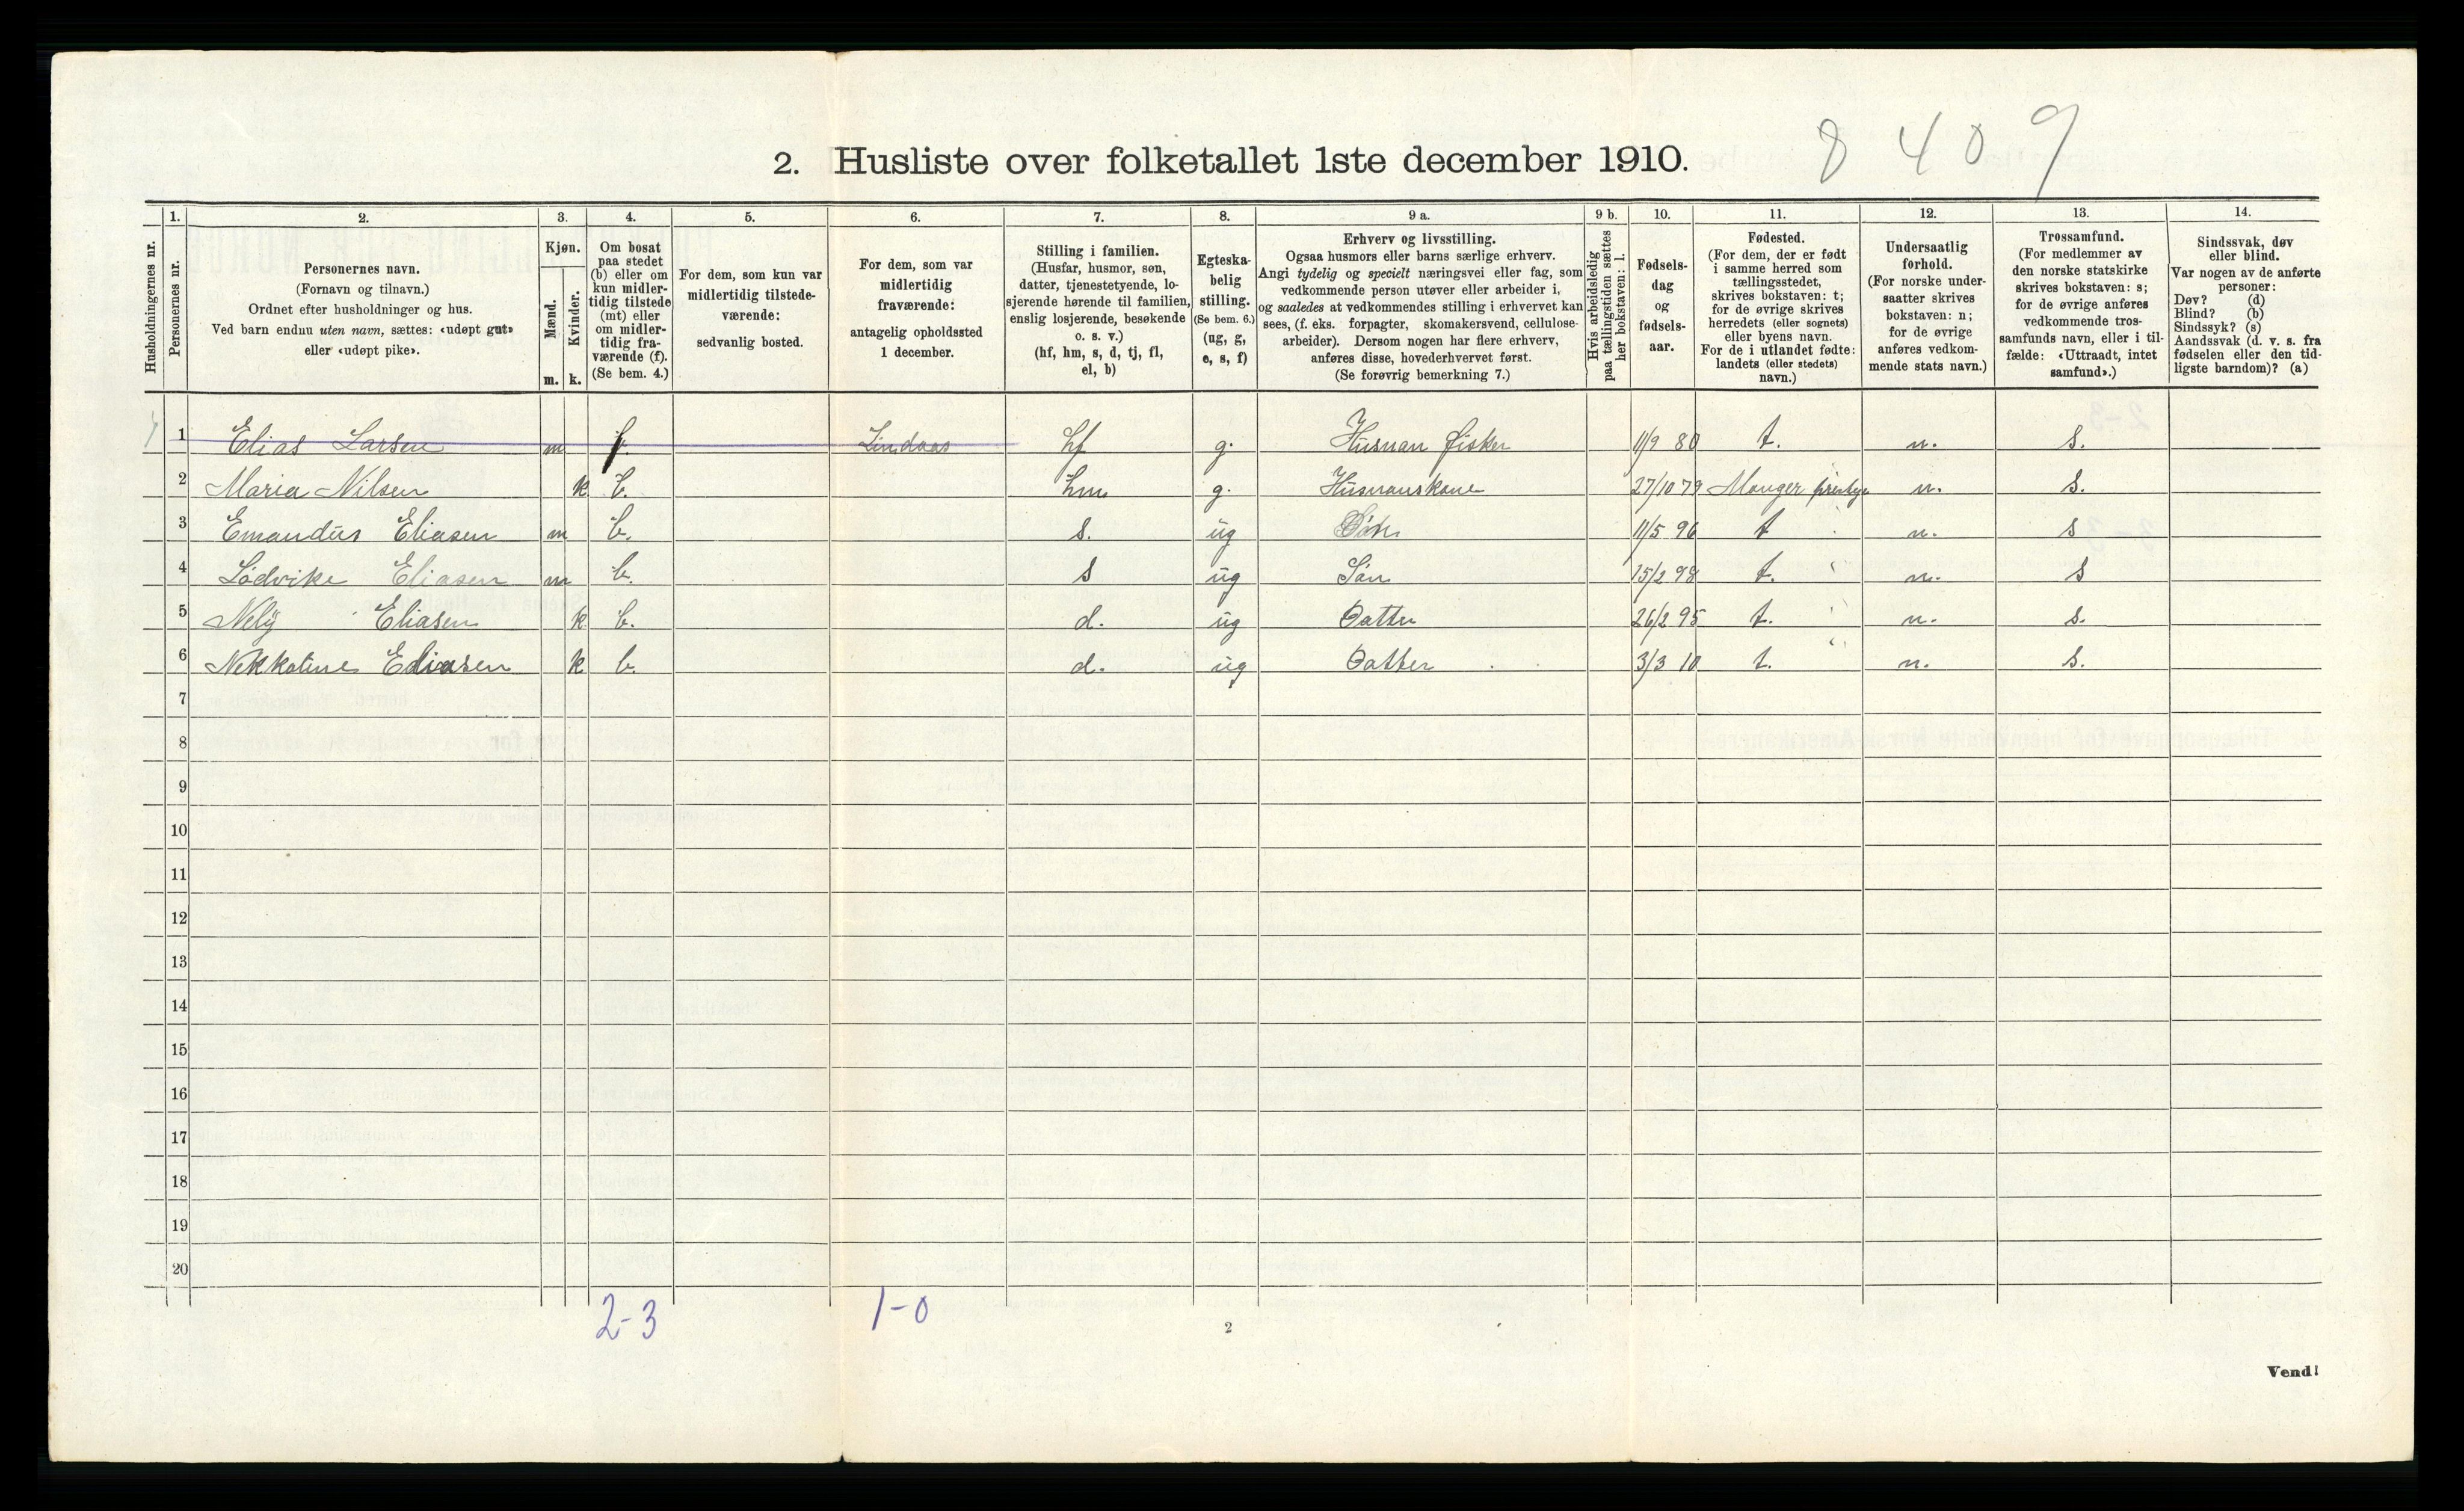 8 4 0 9
2. Husliste over folketallet 1ste december 1910.
Husholdningernes nr.
1.
Personernes nr.
2.
Personernes navn.
(Fornavn og tilnavn.)
Ordnet efter husholdninger og hus.
Ved barn endnu uten navn, sættes: «udøpt gut»
eller «udøpt pike».
3.
Kjøn.
Mænd.
Kvinder.
m. k.
4.
Om bosat
paa stedet
(b) eller om
kun midler-
tidig tilstede
(mt) eller
om midler-
tidig fra-
værende (f).
(Se bem. 4.)
5.
For dem, som kun var
midlertidig tilstede-
værende:
sedvanlig bosted.
6.
For dem, som var
midlertidig
fraværende:
antagelig opholdssted
1 december.
7.
Stilling i familien.
(Husfar, husmor, søn,
datter, tjenestetyende, lo-
sjerende hørende til familien,
enslig losjerende, besøkende
o. s. v.)
(hf, hm, s, d, tj, fl,
el, b)
8.
Egteska-
belig
stilling.
(Se bem. 6.)
(ug, g,
e, s, f)
9 a.
Erhverv og livsstilling.
Ogsaa husmors eller barns særlige erhverv.
Angi tydelig og specielt næringsvei eller fag, som
vedkommende person utøver eller arbeider i,
og saaledes at vedkommendes stilling i erhvervet kan
sees, (f. eks. forpagter, skomakersvend, cellulose-
arbeider). Dersom nogen har flere erhverv,
anføres disse, hovederhvervet først.
(Se forøvrig bemerkning 7.)
9 b.
Hvis arbeidsledig
paa tællingstiden sættes
her bokstaven: l.
10.
Fødsels-
dag
og
fødsels-
aar.
11.
Fødested.
(For dem, der er født
i samme herred som
tællingsstedet,
skrives bokstaven: t;
for de øvrige skrives
herredets (eller sognets)
eller byens navn.
For de i utlandet fødte:
landets (eller stedets)
navn.)
12.
Undersaatlig
forhold.
(For norske under-
saatter skrives
bokstaven: n;
for de øvrige
anføres vedkom-
mende stats navn.)
13.
Trossamfund.
(For medlemmer av
den norske statskirke
skrives bokstaven: s;
for de øvrige anføres
vedkommende tros-
samfunds navn, eller i til-
fælde: «Uttraadt, intet
samfund».)
14.
Sindssvak, døv
eller blind.
Var nogen av de anførte
personer:
Døv? (d)
Blind? (b)
Sindssyk? (s)
Aandssvak (d. v. s. fra
fødselen eller den tid-
ligste barndom)? (a)
1 Elias Larsen m f. Lindaas hf g. Husman fisker 11/9 80 t. n. s.
2 Maria Nilsen k b. hm g. Husmanskone 27/10 79 Manger n. s.
3 Emandus Eliasen m b. s. ug Søn 11/5 96 t n. s
4 Lodvike Eliasen m b. s ug Søn 15/2 98 t. n. s
5 Nely Eliasen k b. d. ug Datter 26/2 95 t. n. s.
6 Nekkoline Eliasen k b. d. ug Datter 3/3 10 t. n. s.
7
8
9
10
11
12
13
14
15
16
17
18
19
20
2-3 1-0
2
Vend!